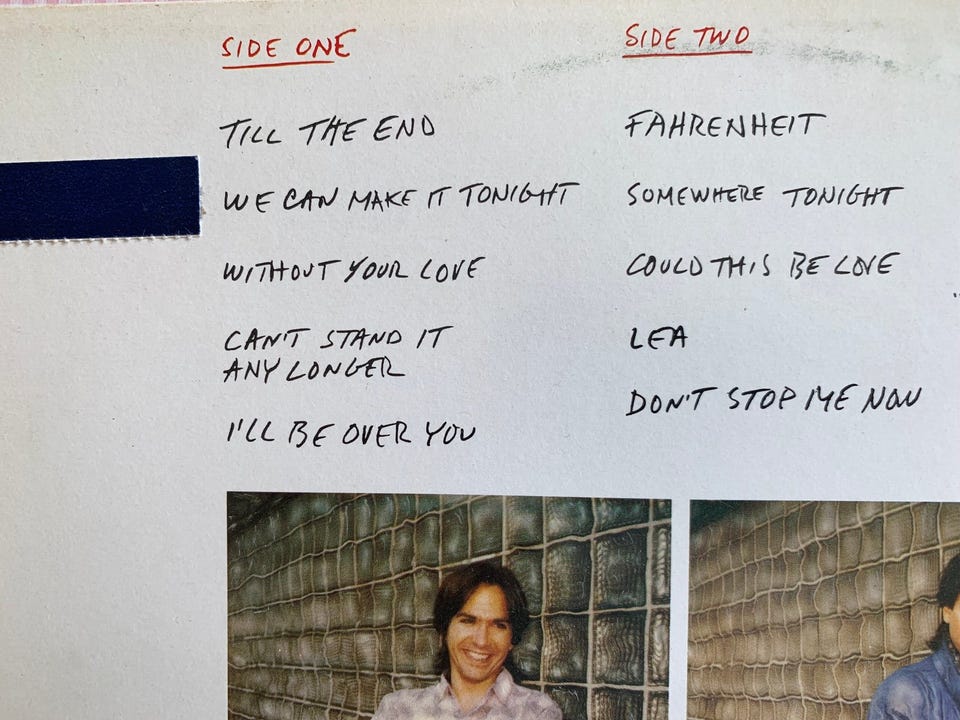 SIDE ONE
TILL THE END
WE CAN MAKE IT TONIGHT
WITHOUT YOUR LOVE
CAN'T STAND IT
ANY LONGER
I'LL BE OVER YOU
SIDE TWO
FAHRENHEIT
SOMEWHERE TONIGHT
COULD THIS BE LOVE
LEA
DON'T STOP ME NOW